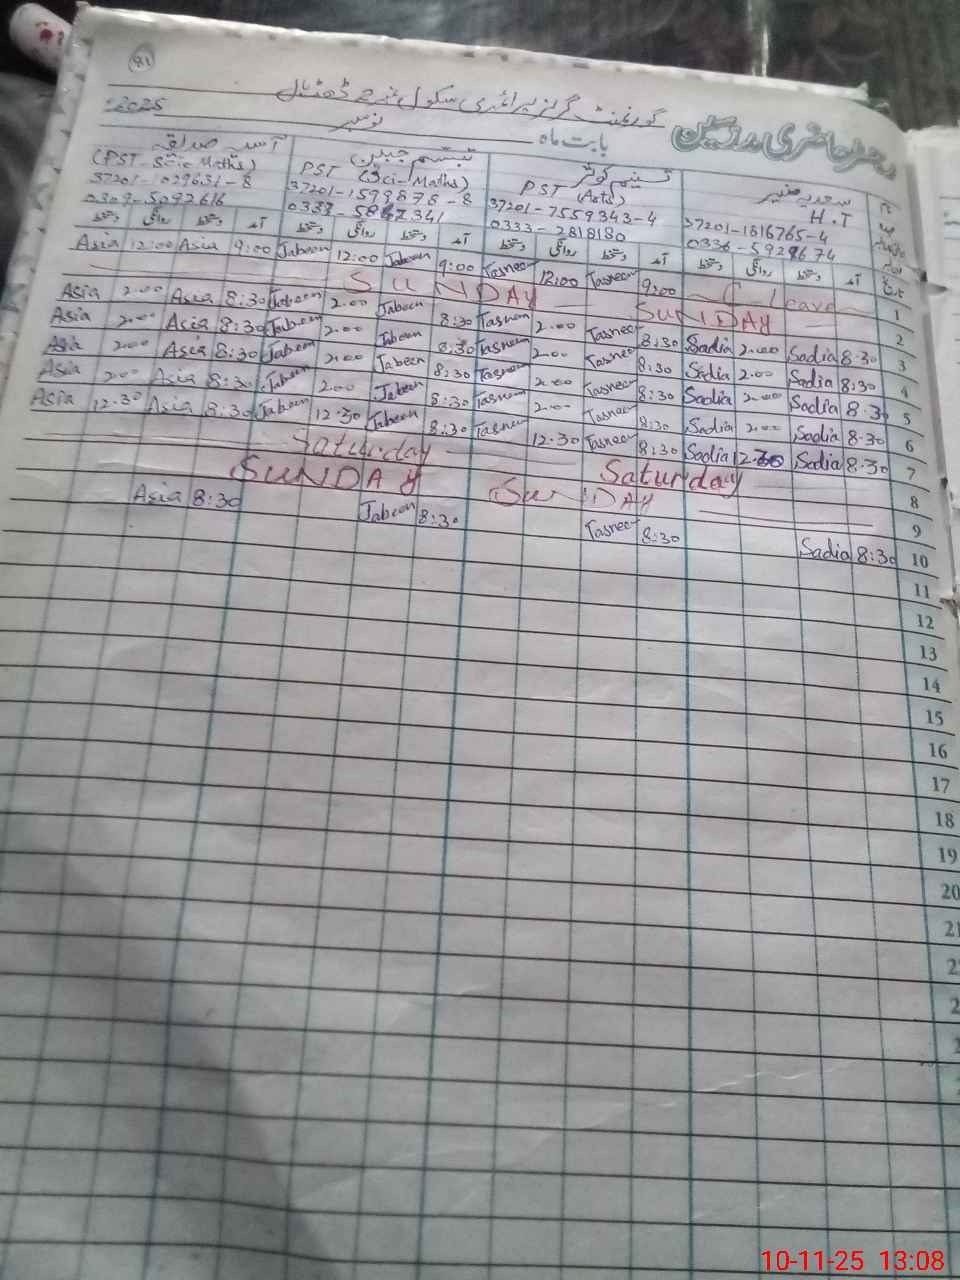 91
گورنمنٹ گرلز پرائمری سکول نمبر 2 ڈھڈیال
رجسٹر حاضری مدرسین
بابت ماہ نومبر 2025
سعدیہ منیر
H.T
37201-1816765-4
0336-5929674
تسنیم کوثر
PST (Arts)
37201-7559343-4
0333-2818180
تبسم جبین
PST (Sci-Maths)
37201-1599876-8
0333-5867341
آسیہ صدیقہ
(PST-Scie Maths)
37201-1029631-8
0309-5092616
آمد دستخط روانگی دستخط آمد دستخط روانگی دستخط آمد دستخط روانگی دستخط آمد دستخط روانگی دستخط
Asia 12:00 Asia 9:00 Jabeen 12:00 Jabeen 9:00 Tasneem 12:00 Tasneem 9:00 C-Leave 1
SUNDAY SUNDAY 2
Asia 2:00 Asia 8:30 Jabeen 2:00 Jabeen 8:30 Tasneem 2:00 Tasneem 8:30 Sadia 2:00 Sadia 8:30 3
Asia 2:00 Asia 8:30 Jabeen 2:00 Jabeen 8:30 Tasneem 2:00 Tasneem 8:30 Sadia 2:00 Sadia 8:30 4
Asia 2:00 Asia 8:30 Jabeen 2:00 Jabeen 8:30 Tasneem 2:00 Tasneem 8:30 Sadia 2:00 Sadia 8:30 5
Asia 2:00 Asia 8:30 Jabeen 2:00 Jabeen 8:30 Tasneem 2:00 Tasneem 8:30 Sadia 2:00 Sadia 8:30 6
Asia 12:30 Asia 8:30 Jabeen 12:30 Jabeen 8:30 Tasneem 12:30 Tasneem 8:30 Sadia 12:30 Sadia 8:30 7
Saturday Saturday 8
SUNDAY SUNDAY 9
Asia 8:30 Jabeen 8:30 Tasneem 8:30 Sadia 8:30 10
11
12
13
14
15
16
17
18
19
20
10-11-25 13:08